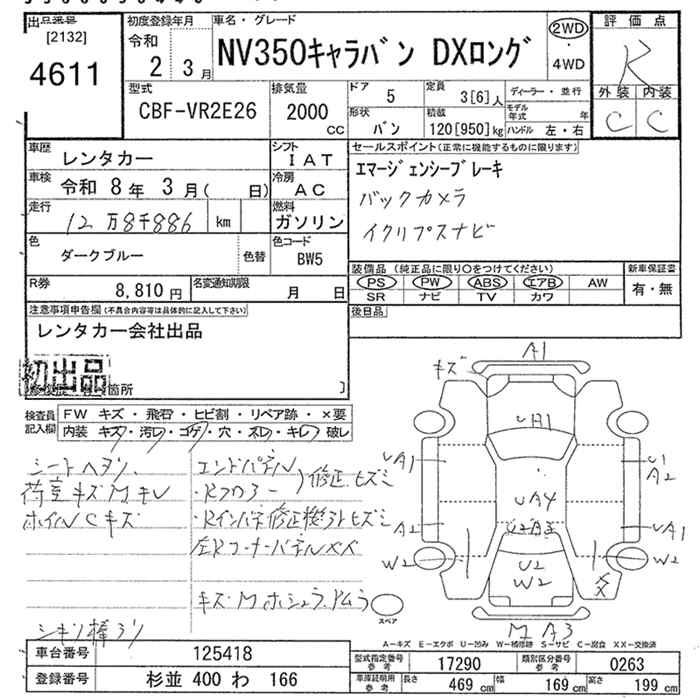 出品番号
[2132]
4611
初度登録年月
令和
2 3月
車名・グレード
NV350キャラバン DXロング
2WD
・
4WD
評価点
R
外装 内装
C C
型式
CBF-VR2E26
排気量
2000
cc
ドア
5
定員
3[6]人
ディーラー・並行
形状
バン
積載
120[950]kg
モデル年式 年
ハンドル 左・右
車歴
レンタカー
シフト
IAT
車検
令和 8年 3月( 日)
冷房
AC
走行
12万8千886 km
燃料
ガソリン
色
ダークブルー
色替
色コード
BW5
R券
8,810円
名変通知期限
月 日
セールスポイント(正常に機能するものに限ります)
エマージェンシーブレーキ
バックカメラ
イクリプスナビ
装備品(純正品に限り○をつけてください)
PS PW ABS エアB AW
SR ナビ TV カワ
新車保証書
有・無
後日品
注意事項申告欄(不具合内容等は具体的に記入して下さい)
レンタカー会社出品
初出品
箇所
検査員記入欄
FW キズ・飛石・ヒビ割・リペア跡・×要
内装 キズ・汚レ・コゲ・穴・ヌレ・キレ・破レ
シートヘタリ
荷室キズMキレ
ホイルCキズ
エンドパネル
・Rフロアー
修正ヒズミ
・Rインパネ修正機アトヒズミ
左Rコーナーパネル××
キズM ホシュウ、Pムラ
シキリ棒アリ
A1
キズ
UA1
UA1
U1
A2
UA4
U2A3
A2
UA1
W2
W2
U2
W2
××
MA3
スペア
A-キズ E-エクボ U-凹み W-補修跡 S-サビ C-腐食 XX-交換済
車台番号
125418
登録番号
杉並 400 わ 166
型式指定番号
参考
17290
類別区分番号
参考
0263
車庫証明用
参考
長さ
469 cm
幅
169 cm
高さ
199 cm